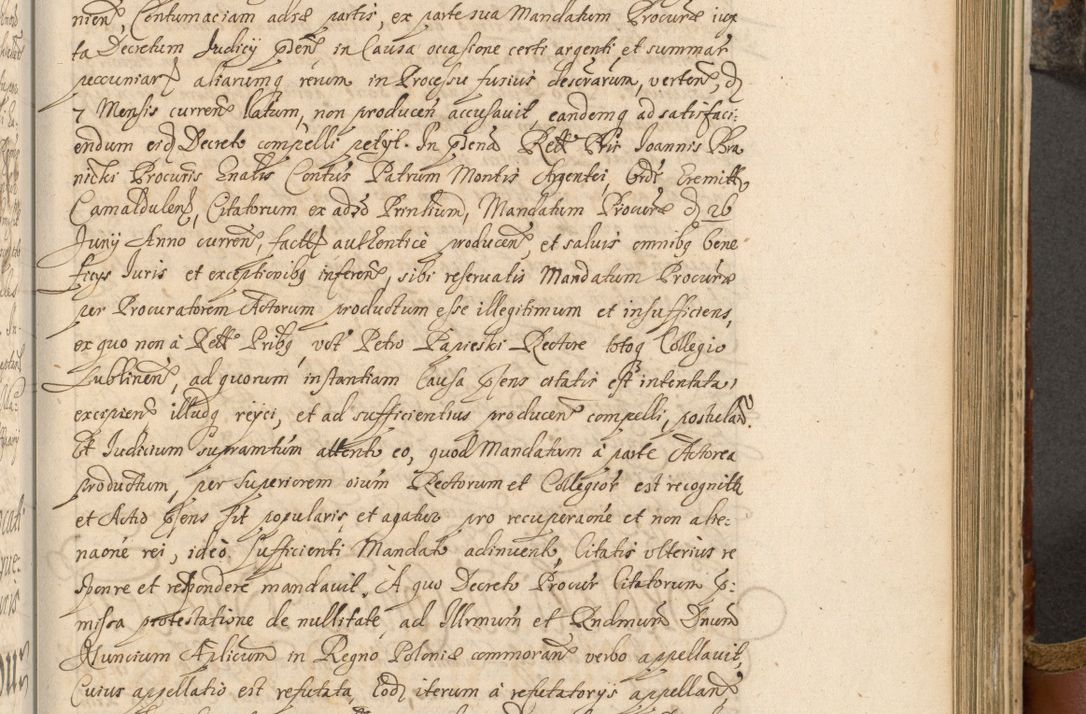 nien, Contumaciam adsæ partis, ex parte sua Mandatum Procuræ iux
ta Decretum Judicy pñs in Causa occasione certi argenti et summar
pecuniar aliarumq rerum in Processu fusius descrarum, verten, d
7 Mensis curren latum, non producen accusavit, eandemq ad satisfaci:
endum eid Decreto compelli petyt. In pñtia Rel Pris Joannis Bra
nicki Procuris Gnalis Contus Patrum Montis Argentei, Ordi Eremitt
Camaldulen, Citatorum ex adso Prinlium, Mandatum Procuræ d 26
Juny Anno curren, factt authenticè producen, et salvis omnibq bene
ficys Juris et exceptionibq inferen, sibi reservatis Mandatum Procuræ
per Procuratorem Actorum productum esse illegitimum et insufficiens,
ex quo non à Rell Pribq vot Petro Papieski Rectore totoq Collegio
Lublinen, ad quorum instantiam Causa pñs citatis est intentata,
excipien illudq reyci, et ad sufficientius producen compelli, postulan.
Et Judicium supramtum attento eo, quod Mandatum à parte Actorea
productum, per superiorem oium Rectorum et Collegior est recognitt
et Actio pñs sit popularis, et agatur pro recuperaone et non alie:
naone rei, ideo sufficienti Mandato adinvento, Citatis ulterius re
sponre et respondere mandavit. A quo Decreto Procur Citatorum p:
missa protestatione de nullitate, ad Illrmum et Rndmum Dnum
Nuncium Aplicum in Regno Poloniæ commoran verbo appellavit,
Cuius appellatio est refutata, Eod iterum à refutatorys appellan